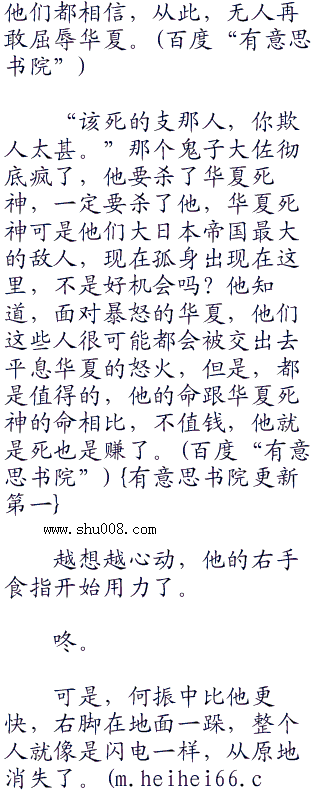 他们都相信，从此，无人再
敢屈辱华夏。(百度“有意思
书院”)
“该死的支那人，你欺
人太甚。”那个鬼子大佐彻
底疯了，他要杀了华夏死
神，一定要杀了他，华夏死
神可是他们大日本帝国最大
的敌人，现在孤身出现在这
里，不是好机会吗？他知
道，面对暴怒的华夏，他们
这些人很可能都会被交出去
平息华夏的怒火，但是，都
是值得的，他的命跟华夏死
神的命相比，不值钱，他就
是死也是赚了。(百度“有意
思书院”){有意思书院更新
第一}
www.shu008.com
越想越心动，他的右手
食指开始用力了。
咚。
可是，何振中比他更
快，右脚在地面一跺，整个
人就像是闪电一样，从原地
消失了。(m.heihei66.c